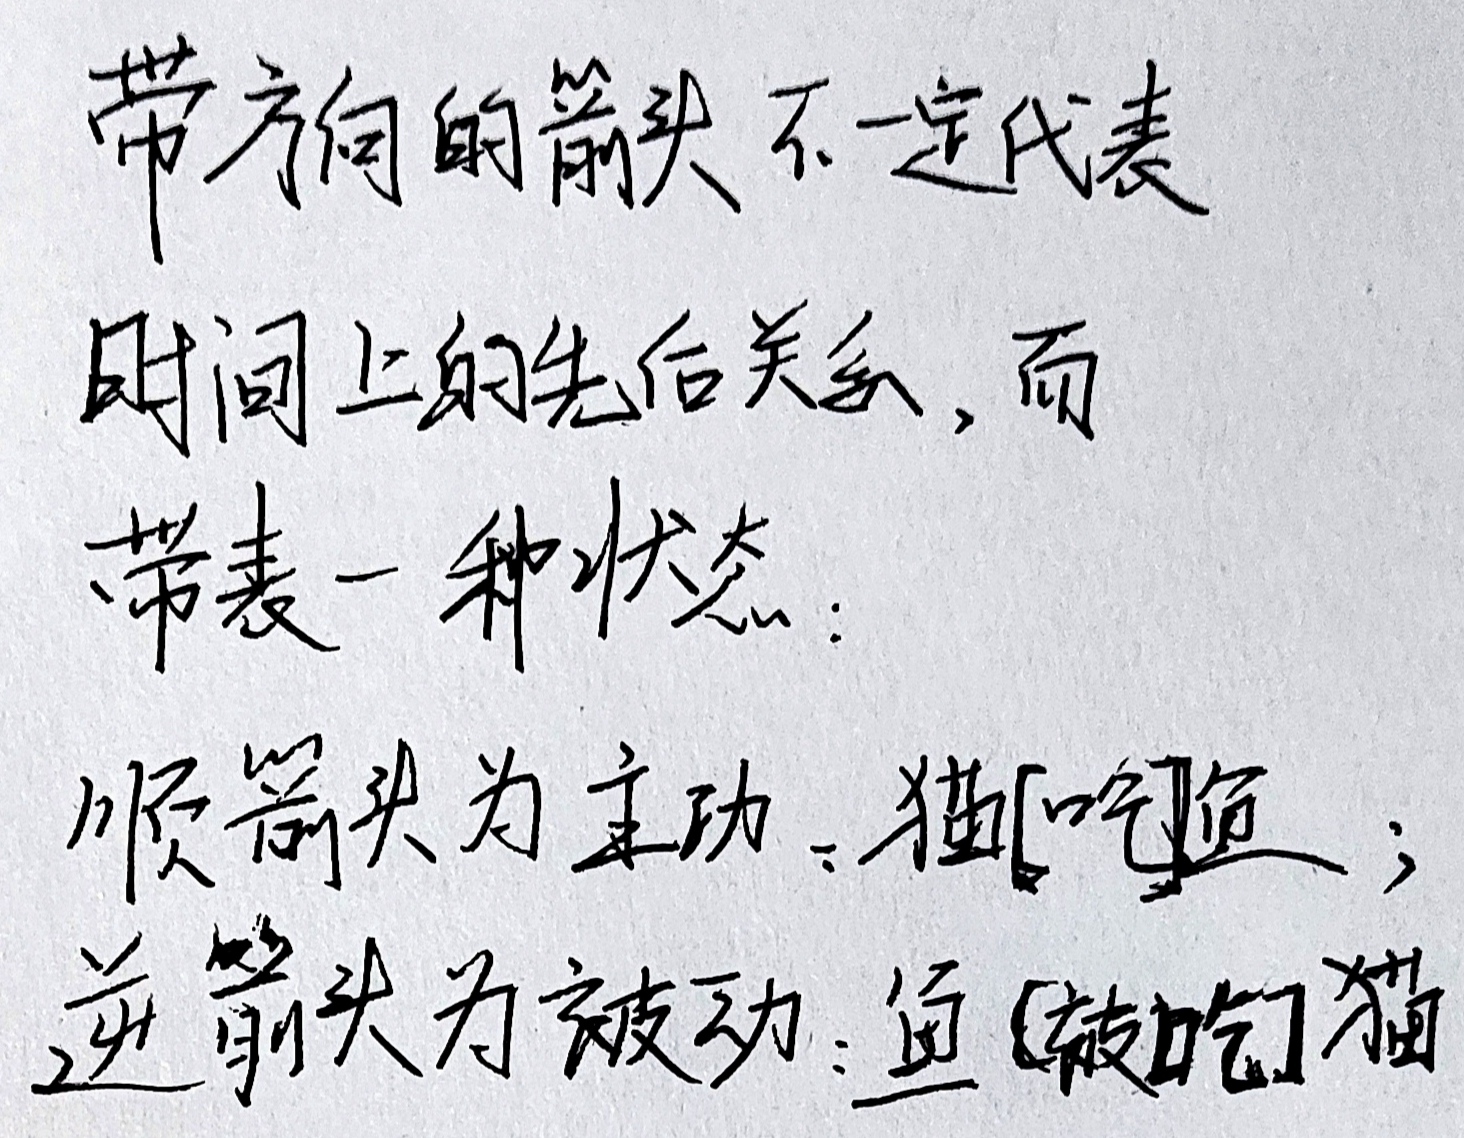 带方向的箭头不一定代表
时间上的先后关系,而
带表一种状态:
顺箭头为主动:猫[吃]鱼;
逆箭头为被动:鱼[被吃]猫